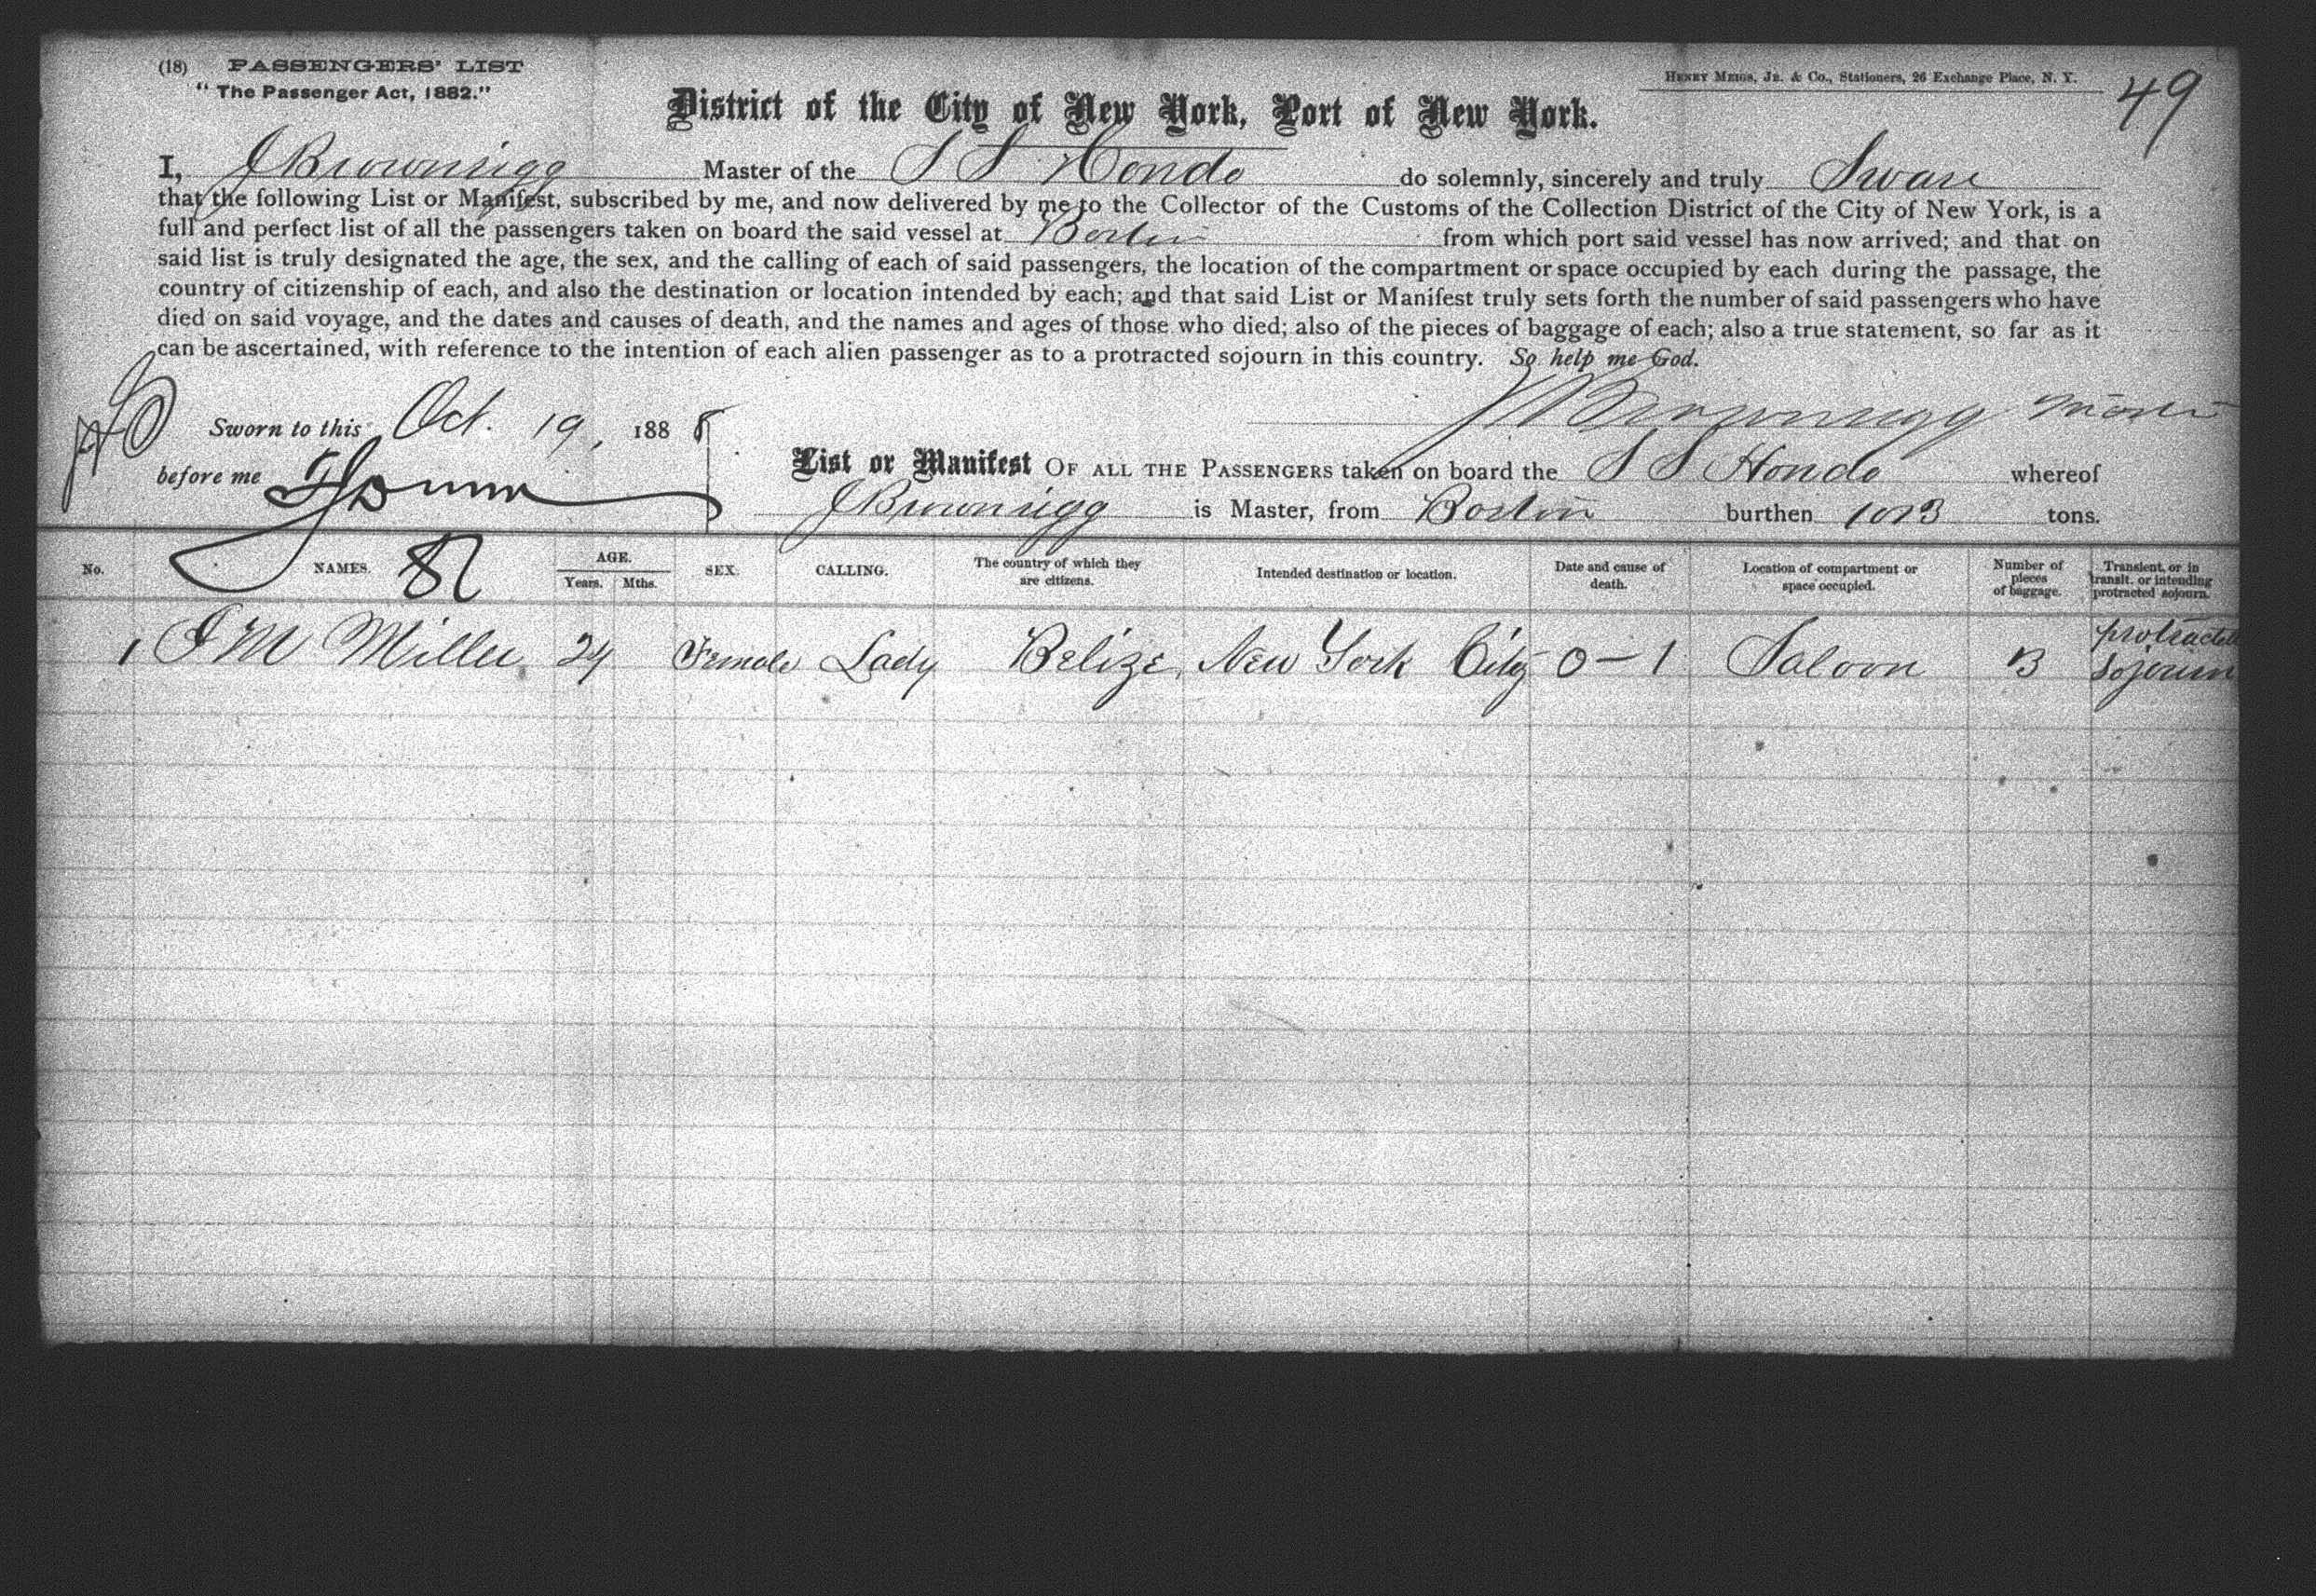 (18) PASSENGERS' LIST
"The Passenger Act, 1882."
HENRY MEIGS, JR. & Co., Stationers, 26 Exchange Place, N. Y.
49
District of the City of New York, Port of New York.
I, J Brownrigg Master of the S S Hondo do solemnly, sincerely and truly Swear
that the following List or Manifest, subscribed by me, and now delivered by me to the Collector of the Customs of the Collection District of the City of New York, is a
full and perfect list of all the passengers taken on board the said vessel at Boston from which port said vessel has now arrived; and that on
said list is truly designated the age, the sex, and the calling of each of said passengers, the location of the compartment or space occupied by each during the passage, the
country of citizenship of each, and also the destination or location intended by each; and that said List or Manifest truly sets forth the number of said passengers who have
died on said voyage, and the dates and causes of death, and the names and ages of those who died; also of the pieces of baggage of each; also a true statement, so far as it
can be ascertained, with reference to the intention of each alien passenger as to a protracted sojourn in this country. So help me God.
J Brownrigg Master
Sworn to this Oct. 19, 1888
before me
List or Manifest OF ALL THE PASSENGERS taken on board the S S Hondo whereof
J Brownrigg is Master, from Boston burthen tons.
No. NAMES. AGE. Years. Mths. SEX. CALLING. The country of which they are citizens. Intended destination or location. Date and cause of death. Location of compartment or space occupied. Number of pieces of baggage. Transient, or in transit, or intending protracted sojourn.
1 M Miller 24 Female Lady Belize, New York City 0-1 Saloon protracted sojourn